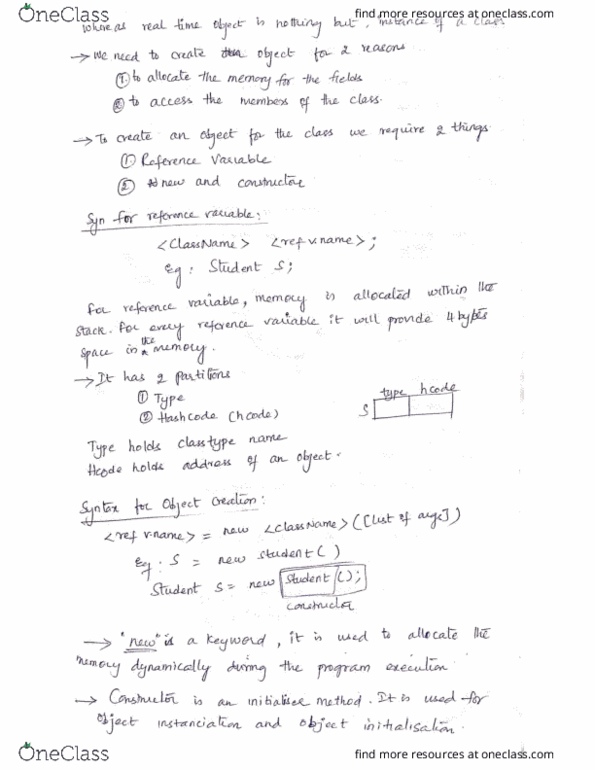 OneClass
find more resources at oneclass.com
whereas real time object is nothing but, instance of a class
→ We need to create object for 2 reasons
① to allocate the memory for the fields
② to access the members of the class.
→ To create an object for the class we require 2 things
① Reference Variable
② new and constructor
Syn for reference variable:
<ClassName> <ref v.name>;
Eg: Student S;
for reference variable, memory is allocated within the
stack. for every reference variable it will provide 4 bytes
space in the memory.
→ It has 2 partitions
① Type
② Hashcode (hcode)
type hcode
S
Type holds class type name
Hcode holds address of an object.
Syntax for Object Creation:
<ref v.name> = new <ClassName>([list of args])
Eg: S = new student()
Student S = new Student();
constructor
→ "new" is a keyword, it is used to allocate the
memory dynamically during the program execution
→ Constructor is an initialise method. It is used for
object instanciation and object initialisation.
OneClass
find more resources at oneclass.com